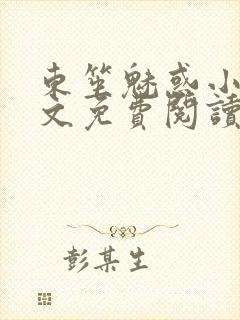 東笙魅惑小
文免費閱讀
彭某生